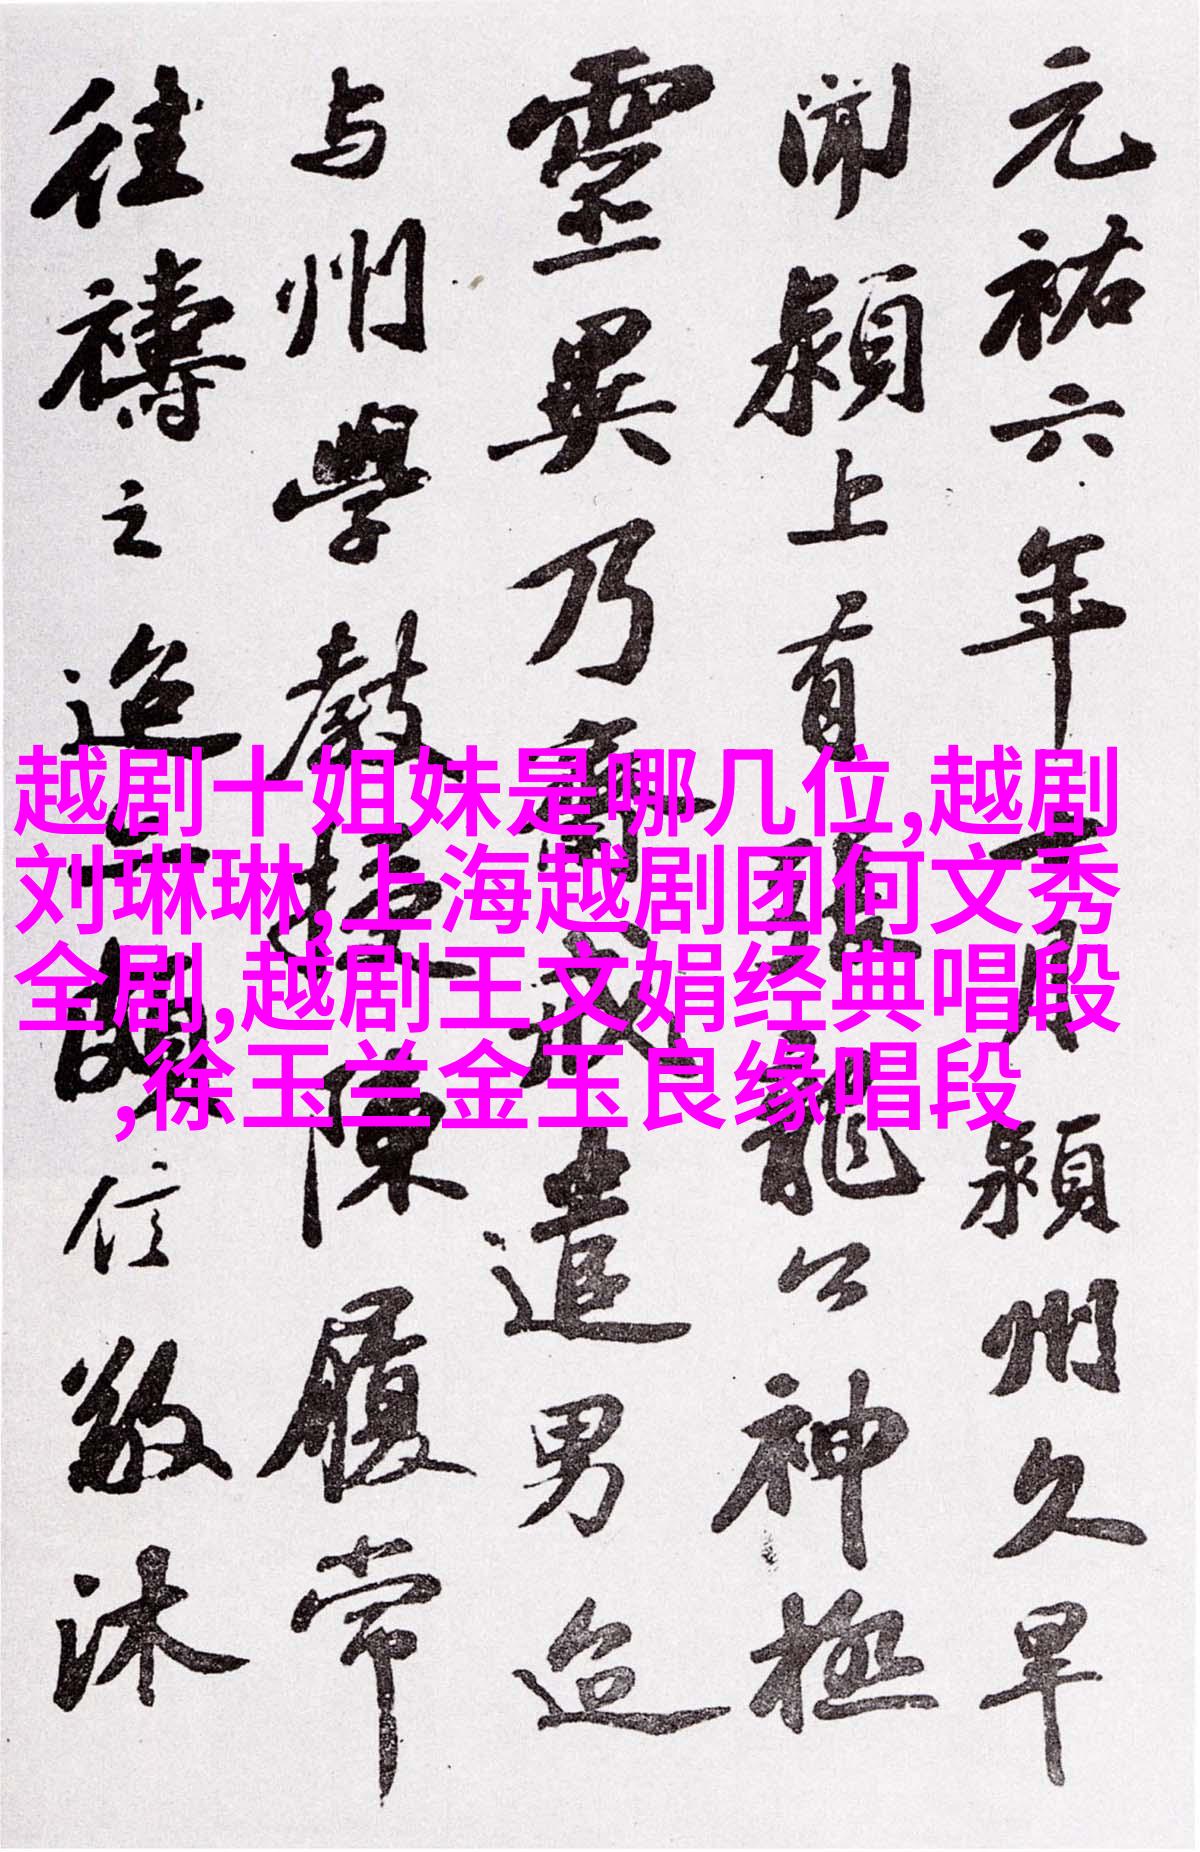 元祐六年十月潁州久旱
聞潁上有張龍公神極
靈異乃齋戒遣男迨
与州學教授陳履常
往禱之迨亦頗信敬沐
越剧十姐妹是哪几位,越剧
刘琳琳,上海越剧团何文秀
全剧,越剧王文娟经典唱段
,徐玉兰金玉良缘唱段